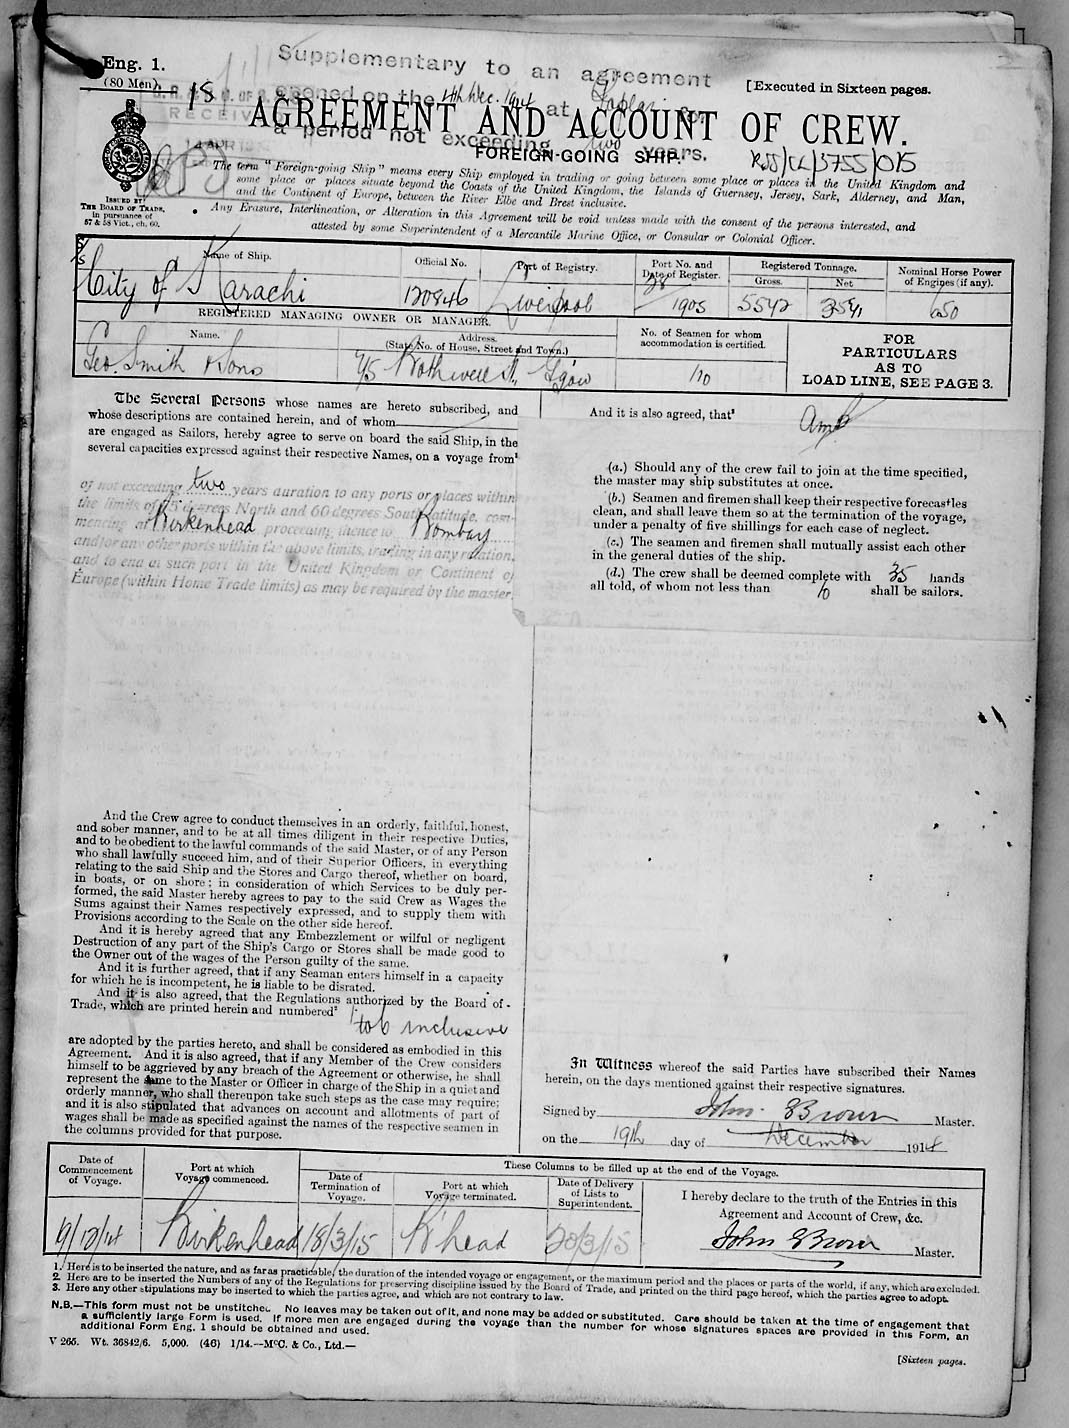 Eng. 1.
(80 Men).
15
Supplementary to an agreement
opened on the 4th Dec. 1914 at
a period not exceeding two years.
RECEIV
14 APR
[Executed in Sixteen pages.
AGREEMENT AND ACCOUNT OF CREW.
FOREIGN-GOING SHIP.
RSS/CL/3755/015
ISSUED BY
THE BOARD OF TRADE,
in pursuance of
57 & 58 Vict., ch. 60.
The term "Foreign-going Ship" means every Ship employed in trading or going between some place or places in the United Kingdom and
some place or places situate beyond the Coasts of the United Kingdom, the Islands of Guernsey, Jersey, Sark, Alderney, and Man,
and the Continent of Europe, between the River Elbe and Brest inclusive.
Any Erasure, Interlineation, or Alteration in this Agreement will be void unless made with the consent of the persons interested, and
attested by some Superintendent of a Mercantile Marine Office, or Consular or Colonial Officer.
Name of Ship.
Official No.
Port of Registry.
Port No. and
Date of Register.
Registered Tonnage.
Gross.
Net
Nominal Horse Power
of Engines (if any).
S/S
City of Karachi
120846
Liverpool
28
1905
5542
650
REGISTERED MANAGING OWNER OR MANAGER.
Name.
Address.
(State No. of House, Street and Town.)
No. of Seamen for whom
accommodation is certified.
FOR
PARTICULARS
AS TO
LOAD LINE, SEE PAGE 3.
Geo. Smith & Sons
75 Bothwell St., Ggow
110
The Several Persons whose names are hereto subscribed, and
whose descriptions are contained herein, and of whom
are engaged as Sailors, hereby agree to serve on board the said Ship, in the
several capacities expressed against their respective Names, on a voyage from¹
of not exceeding two years duration to any ports or places within
the limits of 75 degrees North and 60 degrees South latitude, com-
mencing at Birkenhead proceeding thence to Bombay
and/or any other ports within the above limits, trading in any rotation,
and to end at such port in the United Kingdom or Continent of
Europe (within Home Trade limits) as may be required by the master.
And the Crew agree to conduct themselves in an orderly, faithful, honest,
and sober manner, and to be at all times diligent in their respective Duties,
and to be obedient to the lawful commands of the said Master, or of any Person
who shall lawfully succeed him, and of their Superior Officers, in everything
relating to the said Ship and the Stores and Cargo thereof, whether on board,
in boats, or on shore; in consideration of which Services to be duly per-
formed, the said Master hereby agrees to pay to the said Crew as Wages the
Sums against their Names respectively expressed, and to supply them with
Provisions according to the Scale on the other side hereof.
And it is hereby agreed that any Embezzlement or wilful or negligent
Destruction of any part of the Ship's Cargo or Stores shall be made good to
the Owner out of the wages of the Person guilty of the same.
And it is further agreed, that if any Seaman enters himself in a capacity
for which he is incompetent, he is liable to be disrated.
And it is also agreed, that the Regulations authorized by the Board of
Trade, which are printed herein and numbered²
1 to 6 inclusive
are adopted by the parties hereto, and shall be considered as embodied in this
Agreement. And it is also agreed, that if any Member of the Crew considers
himself to be aggrieved by any breach of the Agreement or otherwise, he shall
represent the same to the Master or Officer in charge of the Ship in a quiet and
orderly manner, who shall thereupon take such steps as the case may require;
and it is also stipulated that advances on account and allotments of part of
wages shall be made as specified against the names of the respective seamen in
the columns provided for that purpose.
And it is also agreed, that³
(a.) Should any of the crew fail to join at the time specified,
the master may ship substitutes at once.
(b.) Seamen and firemen shall keep their respective forecastles
clean, and shall leave them so at the termination of the voyage,
under a penalty of five shillings for each case of neglect.
(c.) The seamen and firemen shall mutually assist each other
in the general duties of the ship.
(d.) The crew shall be deemed complete with 35 hands
all told, of whom not less than 10 shall be sailors.
In Witness whereof the said Parties have subscribed their Names
herein, on the days mentioned against their respective signatures.
Signed by John Brown Master.
on the 19th day of December 1914
Date of
Commencement
of Voyage.
Port at which
Voyage commenced.
These Columns to be filled up at the end of the Voyage.
Date of
Termination of
Voyage.
Port at which
Voyage terminated.
Date of Delivery
of Lists to
Superintendent.
I hereby declare to the truth of the Entries in this
Agreement and Account of Crew, &c.
John Brown Master.
9/12/14
Birkenhead
18/3/15
B'head
28/3/15
1. Here is to be inserted the nature, and as far as practicable, the duration of the intended voyage or engagement, or the maximum period and the places or parts of the world, if any, which are excluded.
2. Here are to be inserted the Numbers of any of the Regulations for preserving discipline issued by the Board of Trade, and printed on the third page hereof, which the parties agree to adopt.
3. Here any other stipulations may be inserted to which the parties agree, and which are not contrary to law.
N.B.—This form must not be unstitched. No leaves may be taken out of it, and none may be added or substituted. Care should be taken at the time of engagement that
a sufficiently large Form is used. If more men are engaged during the voyage than the number for whose signatures spaces are provided in this Form, an
additional Form Eng. 1 should be obtained and used.
V 265. Wt. 36842/6. 5,000. (46) 1/14.—McC. & Co., Ltd.—
[Sixteen pages.